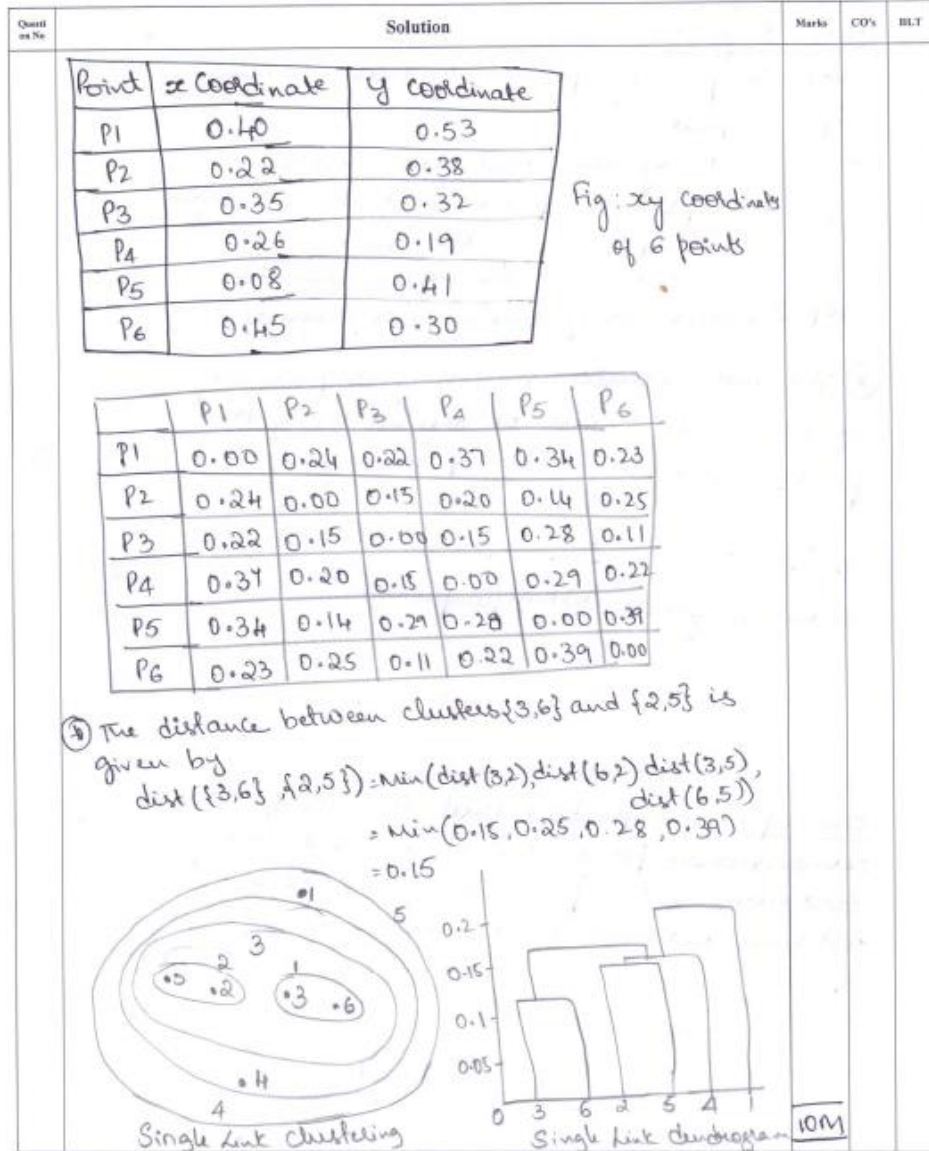 Questi on No Solution Marks CO's BLT
Point x Coordinate y coordinate
P1 0.40 0.53
P2 0.22 0.38
P3 0.35 0.32
P4 0.26 0.19
P5 0.08 0.41
P6 0.45 0.30
Fig: xy coordinates
of 6 points
P1 P2 P3 P4 P5 P6
P1 0.00 0.24 0.22 0.37 0.34 0.23
P2 0.24 0.00 0.15 0.20 0.14 0.25
P3 0.22 0.15 0.00 0.15 0.28 0.11
P4 0.37 0.20 0.15 0.00 0.29 0.22
P5 0.34 0.14 0.29 0.28 0.00 0.39
P6 0.23 0.25 0.11 0.22 0.39 0.00
The distance between clusters {3,6} and {2,5} is
given by
dist({3,6} ,{2,5})=Min(dist(3,2),dist(6,2) dist(3,5),
dist(6,5))
= Min(0.15, 0.25, 0.28, 0.39)
= 0.15
1
5
3
2 1
5 2 3 6
4
4
Single Link Clustering
0.2
0.15
0.1
0.05
0 3 6 2 5 4 1
Single Link dendrogram
10M